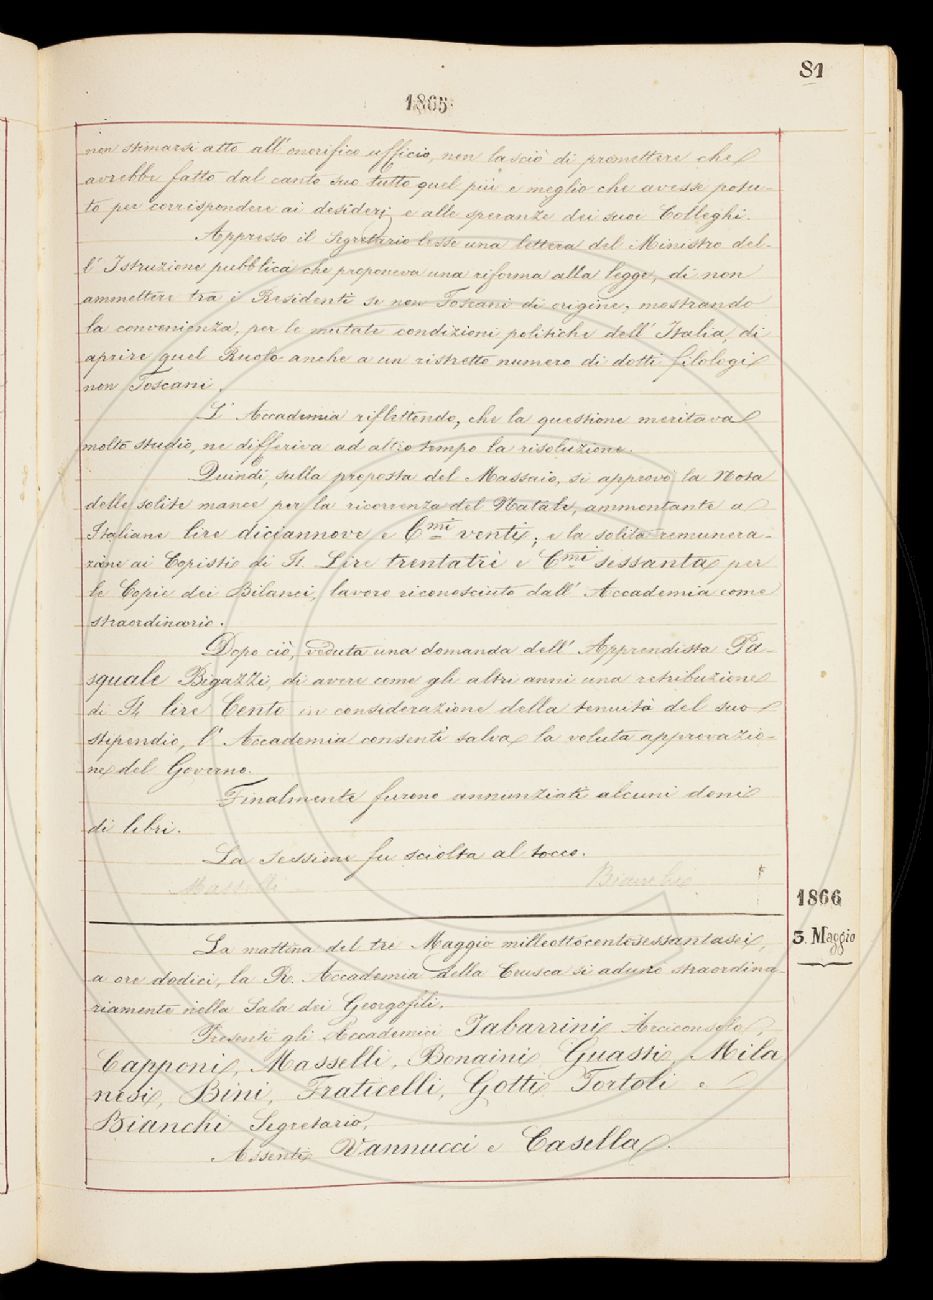 81
1865
non stimarsi atto all' onorifico ufficio, non lasciò di promettere che
avrebbe fatto dal canto suo tutto quel più e meglio che avesse potu-
to per corrispondere ai desiderj e alle speranze dei suoi Colleghi.
Appresso il Segretario lesse una lettera del Ministro del-
l' Istruzione pubblica che proponeva una riforma alla legge, di non
ammettere tra i Residenti se non Toscani di origine; mostrando
la convenienza, per le mutate condizioni politiche dell' Italia, di
aprire quel Ruolo anche a un ristretto numero di dotti filologi
non Toscani.
L' Accademia riflettendo, che la questione meritava
molto studio, ne differiva ad altro tempo la risoluzione.
Quindi, sulla proposta del Massaio, si approvò la Nota
delle solite mance per la ricorrenza del Natale, ammontante a
Italiane lire diciannove e C.mi venti; e la solita remunera-
zione ai Copisti di It. Lire trentatrè e C.mi sessanta per
le Copie dei Bilanci, lavoro riconosciuto dall' Accademia come
straordinario.
Dopo ciò, veduta una domanda dell' Apprendista Pa-
squale Bigazzi, di avere come gli altri anni una retribuzione
di It. lire Cento in considerazione della tenuità del suo
stipendio, l' Accademia consentì salva la voluta approvazio-
ne del Governo.
Finalmente furono annunziati alcuni doni
di libri.
La Sessione fu sciolta al tocco.
Masselli Bianchi
1866
3. Maggio
La mattina del tre Maggio milleottocentosessantasei,
a ore dodici, la R. Accademia della Crusca si adunò straordina-
riamente nella Sala dei Georgofili.
Presenti gli Accademici Tabarrini Arciconsolo,
Capponi, Masselli, Bonaini Guasti, Mila
nesi, Bini, Fraticelli, Gotti, Tortoli e
Bianchi Segretario,
Assenti Vannucci e Casella.